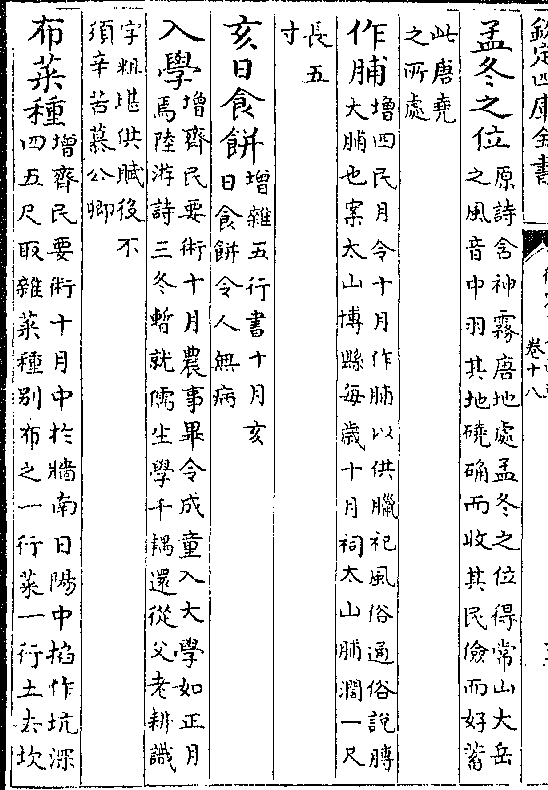 欽定四庫全書
卷十八
孟冬之位 原詩含神霧唐地處孟冬之位得常山大岳
之風音中羽其地磽确而收其民儉而好蓄
此唐堯
之所處
作脯 增四民月令十月作脯以供臘祀風俗通俗說膊
大脯也案太山博縣每歲十月祠太山脯濶一尺
長五
寸
亥日食餅 增雜五行書十月亥
日食餅令人無病
入學 增齊民要術十月農事畢令成童入大學如正月
焉陸游詩三冬暫就儒生學千耦還從父老耕識
字粗堪供賦役不
須辛苦慕公卿
布菜種 增齊民要術十月中於牆南日陽中掐作坑深
四五尺取雜菜種别布之一行菜一行土去坎